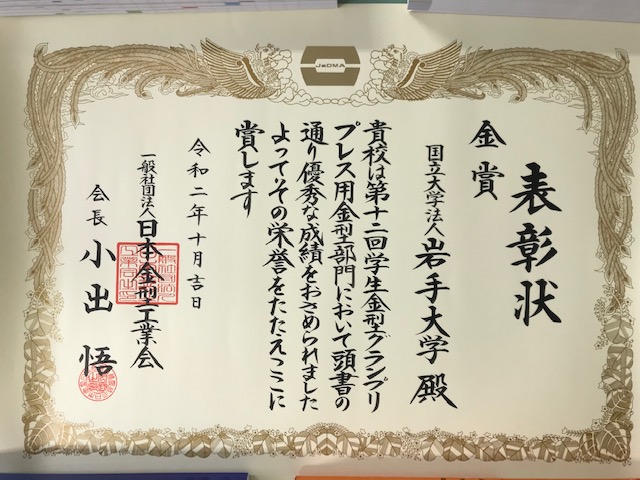 JaDMA
表彰状
金賞
国立大学法人岩手大学殿
貴校は第十二回学生金型グランプリ
プレス用金型部門において頭書の
通り優秀な成績をおさめられました
よってその栄誉をたたえここに
賞します
令和二年十月吉日
一般社団法人日本金型工業会
会長小出悟